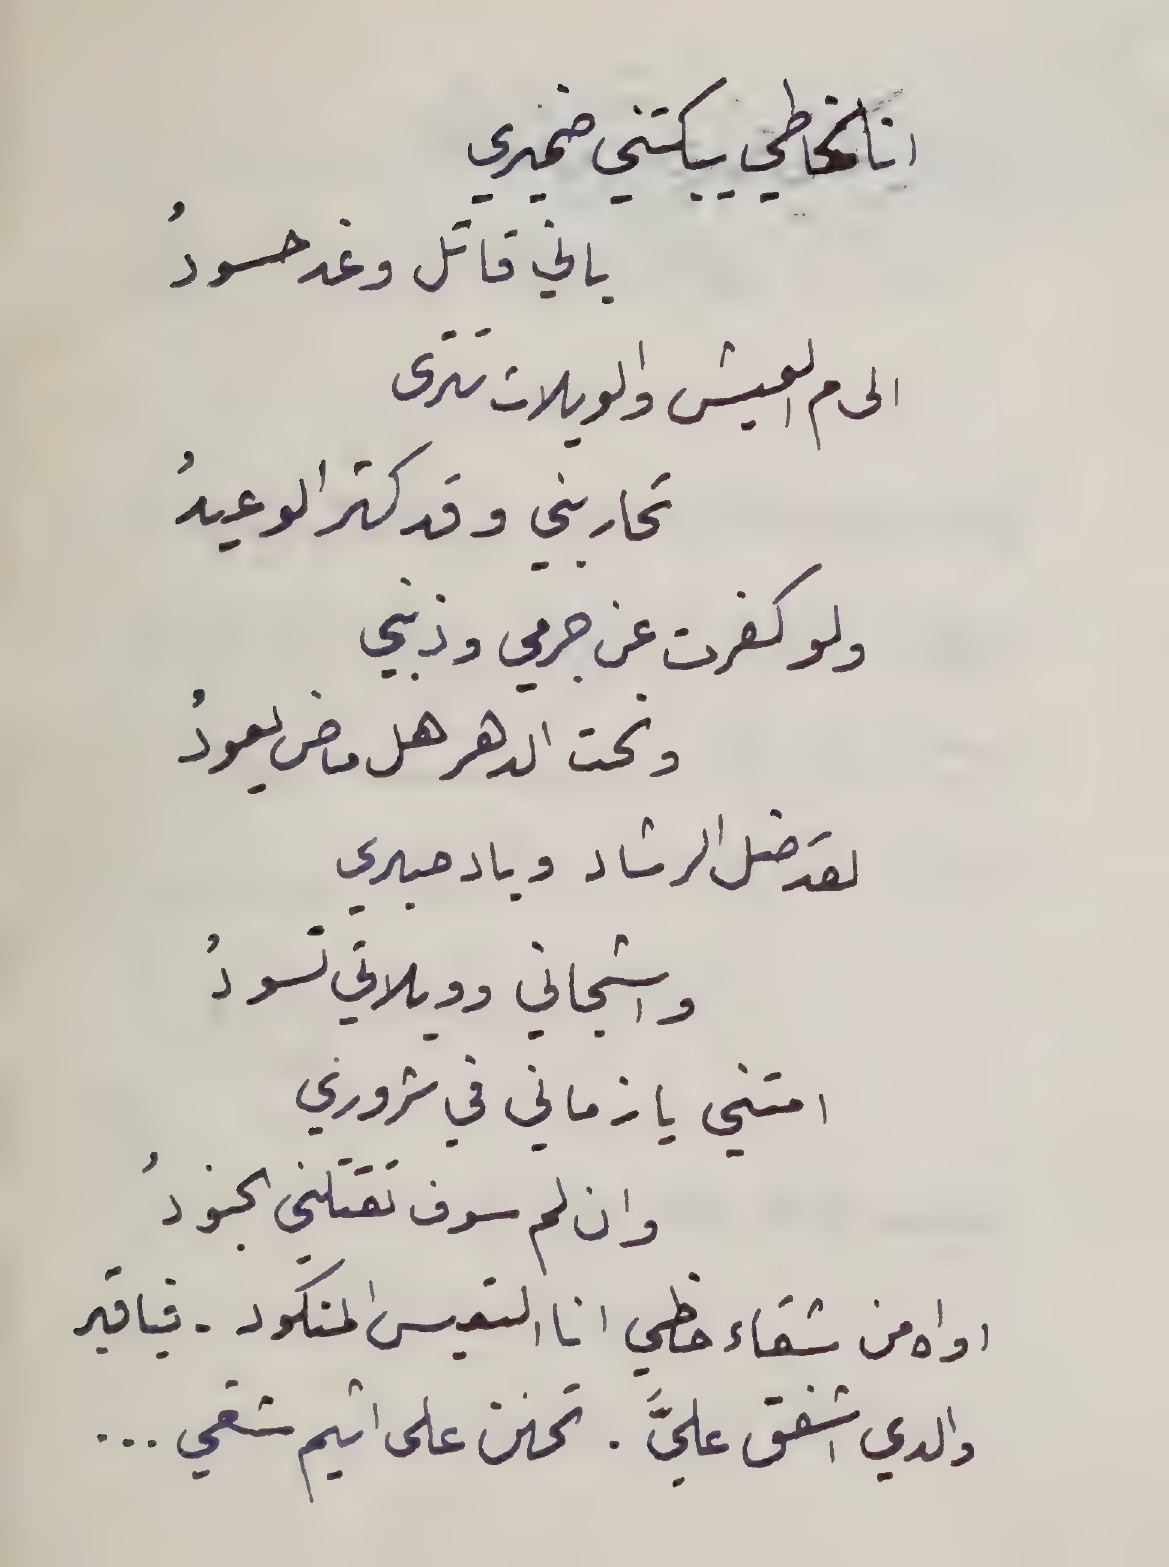 انا الخاطي يبكتني ضميري
باني قاتل وغد حسودُ
الى م العيش والويلات تترى
تحاربني وقد كثر الوعيدُ
ولو كفرت عن جرمي وذنبي
ونحت الدهر هل ماض يعودُ
لقد ضل الرشاد وباد صبري
واشجاني وويلاتي تسودُ
امتني يا زماني في شروري
وان لم سوف تقتلني الجنودُ
اواه من شقاء حظي انا التعيس المنكود . فيا قبر
والدي اشفق عليَّ . تحنن على اثيم شقي ...